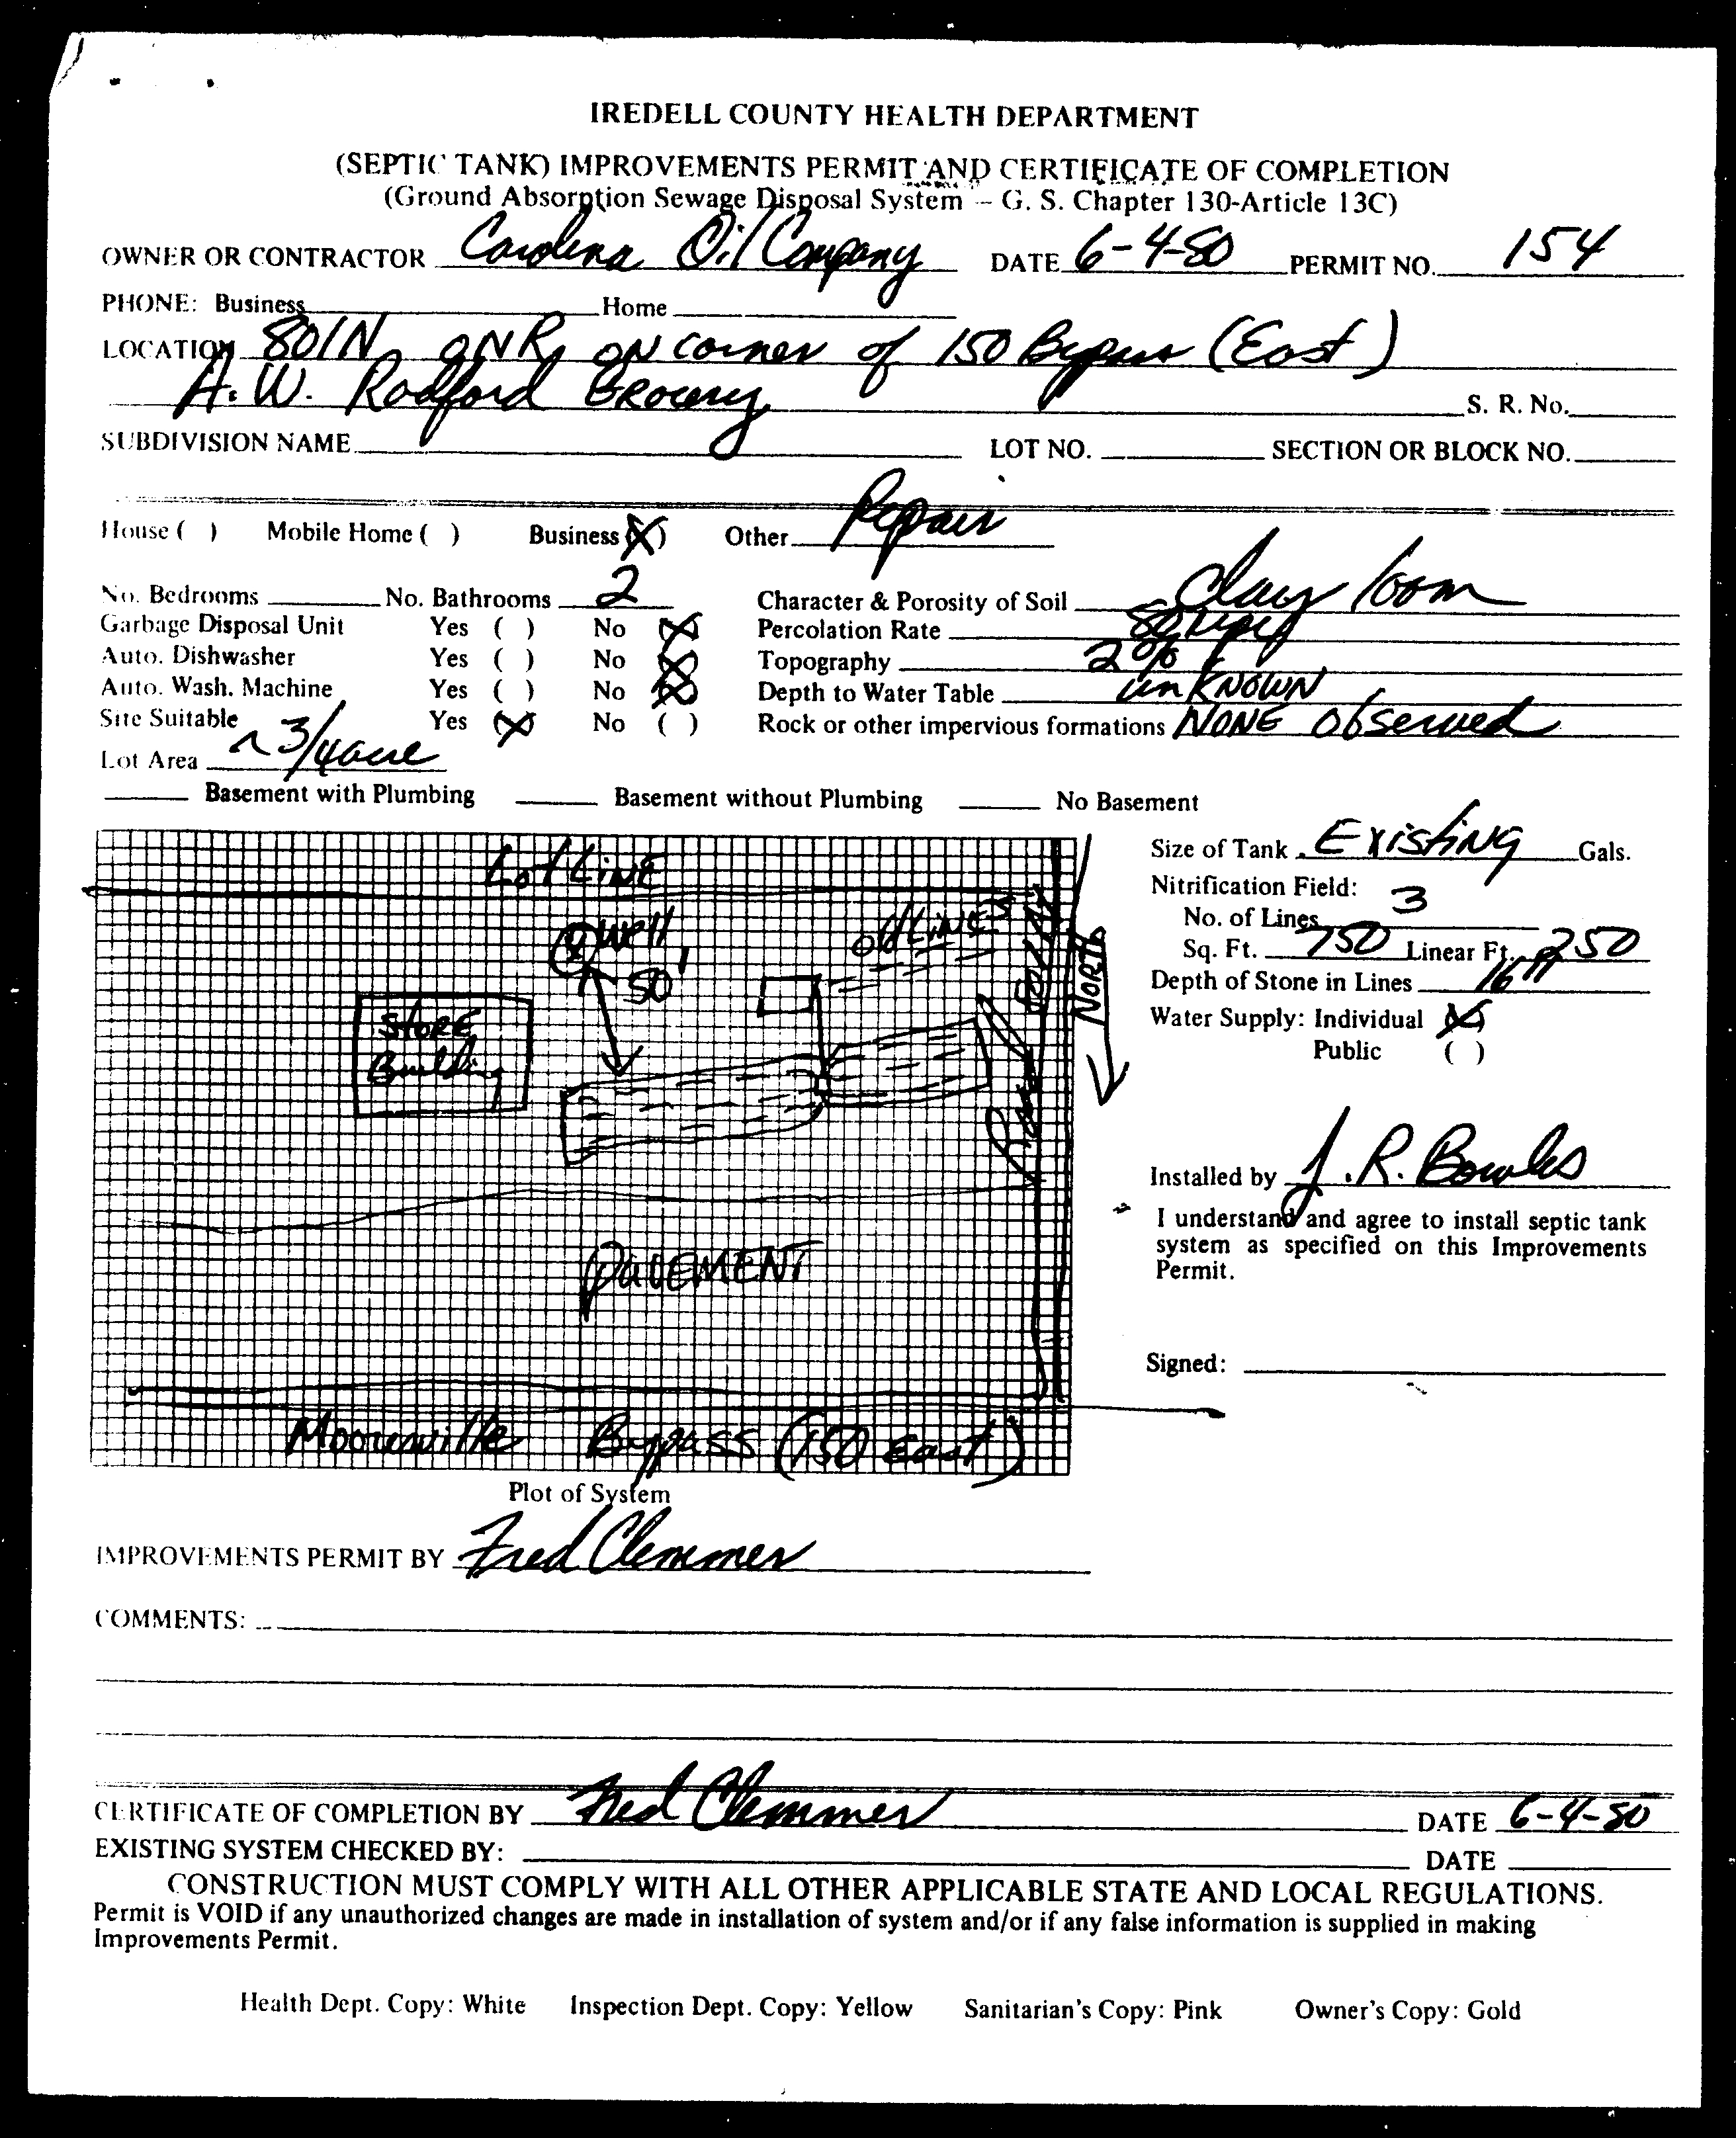 IREDELL COUNTY HEALTH DEPARTMENT
(SEPTIC TANK) IMPROVEMENTS PERMIT AND CERTIFICATE OF COMPLETION
(Ground Absorption Sewage Disposal System – G. S. Chapter 130-Article 13C)
OWNER OR CONTRACTOR Carolina Oil Company DATE 6-4-80 PERMIT NO. 154
PHONE: Business Home
LOCATION 801N ON R, ON corner of 150 Bypass (East)
A.W. Rodford Grocery S. R. No.
SUBDIVISION NAME LOT NO. SECTION OR BLOCK NO.
House ( ) Mobile Home ( ) Business (X) Other Repair
No. Bedrooms No. Bathrooms 2 Character & Porosity of Soil Clay loam
Garbage Disposal Unit Yes ( ) No (X) Percolation Rate 80
Auto. Dishwasher Yes ( ) No (X) Topography 2%
Auto. Wash. Machine Yes ( ) No (X) Depth to Water Table unKNOWN
Site Suitable Yes (X) No ( ) Rock or other impervious formations NONE Observed
Lot Area ~3/4 acre
Basement with Plumbing Basement without Plumbing No Basement
Lot LiNE
Well
50'
old LiNES
STORE
Building
NORTH
PAVEMENT
Mooresville Bypass (150 East)
Plot of System
Size of Tank Existing Gals.
Nitrification Field:
No. of Lines 3
Sq. Ft. 750 Linear Ft. 250
Depth of Stone in Lines 16"
Water Supply: Individual (X)
Public ( )
Installed by J.R. Bowles
I understand and agree to install septic tank
system as specified on this Improvements
Permit.
Signed:
IMPROVEMENTS PERMIT BY Fred Clemmer
COMMENTS:
CERTIFICATE OF COMPLETION BY Fred Clemmer DATE 6-4-80
EXISTING SYSTEM CHECKED BY: DATE
CONSTRUCTION MUST COMPLY WITH ALL OTHER APPLICABLE STATE AND LOCAL REGULATIONS.
Permit is VOID if any unauthorized changes are made in installation of system and/or if any false information is supplied in making
Improvements Permit.
Health Dept. Copy: White Inspection Dept. Copy: Yellow Sanitarian's Copy: Pink Owner's Copy: Gold